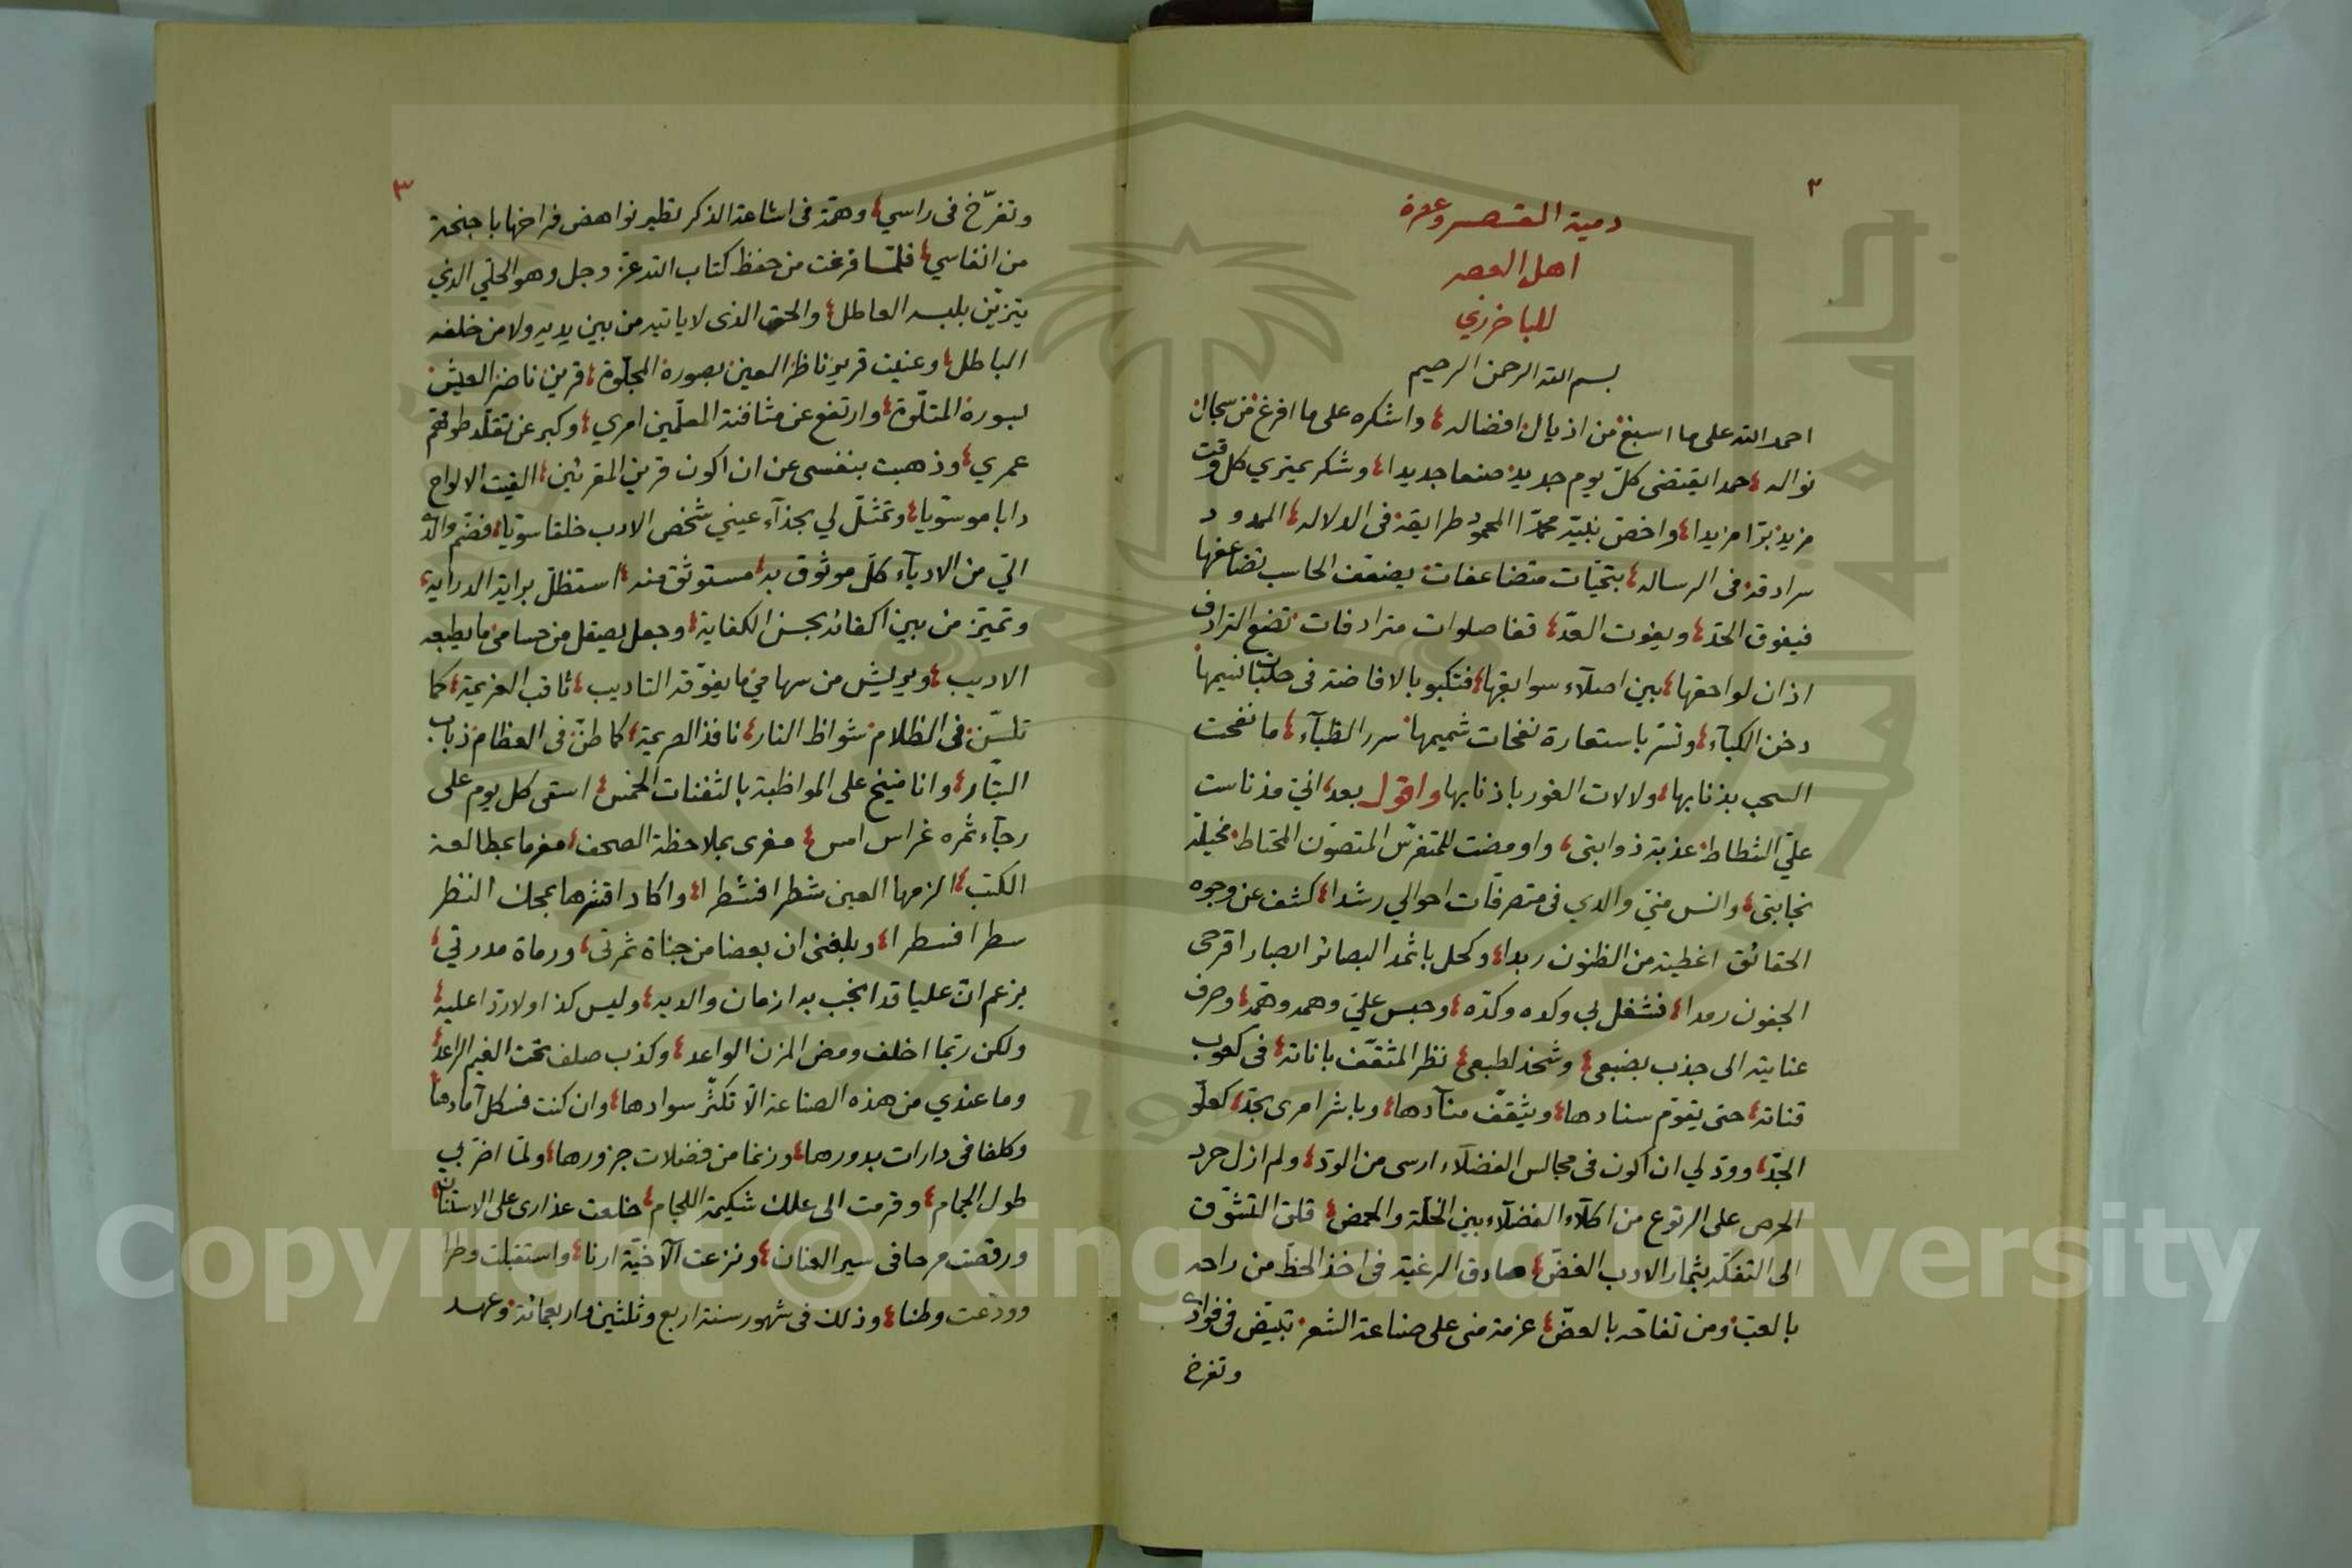 ٢
دمية القصر وعصرة
اهل العصر
للباخرزي
بسم الله الرحمن الرحيم
احمد الله على ما اسبغ من اذيال افضاله، واشكره على ما افرغ من سجال
نواله، حمدا يقتضى كلّ يوم جديد صنعا جديدا، وشكر يمتري كل وقت
مزيد برّا مزيدا، واخصّ نبيّه محمّدا المحمود طرايقه فى الدلاله، الممدود
سرادقه فى الرساله، بتحيّات متضاعفات يضعف الحاسب تضاعفها
فيفوق الحدّ، ويفوت العدّ، تفا صلوات مترادفات تضع الترادف
اذان لواحقها، بين اصلاء سوابقها، فتكبو بالافاضة فى حلبات نسيمها
دخن الكبآء، وتستر باستعارة نفحات شميمها سرر الظبآء، ما نفحت
السحب بذنابها، ولالات الفور باذنابها واقول بعد، انى مذ ناست
علىّ الشطاط عذبة ذوابتى، واومضت للمتفرّس المتصوّن المحتاط مخيلة
نجابتى، وانس منّي والدي فى متصرفات احوالي رشدا، كشف عن وجوه
الحقائق اغطية من الظنون ربدا، وكحل باثمد البصائر ابصارا قرحى
الجفون رمدا، فشغل بي وكده وكدّه، وحبس عليّ وهمه وهمّه، وصرف
عنايته الى جذب بضبعى، وشحذ لطبعى، نظر المثقّف باناته، فى كعوب
قناته، حتى يقوّم سنادها، ويثقّف منآدها، وباشر امرى بجدّ، كعلو
الجدّ، وودّ لي ان اكون فى مجالس الفضلآء ارسى من الودّ، ولم ازل حرد
الحرص على الرتوع من اكلآء الفضلآء بين الخلّة والحمض، قلق التشوّق
الى التفكّه بثمار الادب الغضّ، صادق الرغبة فى اخذ الحظّ من راحه
بالعبّ ومن تفاحه بالعضّ، عزمة منى على صناعة الشعر تبيّض فى فوادى
وتفرخ
٣
وتفرّخ فى راسي، وهمّة فى اشاعة الذكر تطير نواهض فراخها باجنحة
من انفاسي، فلمّا فرغت من حفظ كتاب الله عزّ وجل وهو الحلّي الذي
يتزيّن بلبسه العاطل، والحق الذى لا ياتيه من بين يديه ولا من خلفه
الباطل، وعنيت قرير ناظر العين بصورة المجلوة، قرين ناضر العيش
بسورة المتلّوة، وارتفع عن مثافنة المعلّمين امري، وكبر عن تقلّد طوقهم
عمري، وذهبت بنفسى عن ان اكون قرين المقرئين، الفيت الالواح
دابا موسّويا، وتمثّل لي بحذآء عيني شخص الادب خلقا سوّيا، فضم والدى
اليّ من الادبآء كلّ موثوق به، مستوثق منه، استظلّ براية الدراية،
وتميّز من بين اكفائه بحسن الكفاية، وجعل يصقل من حسامى ما يطبعه
الاديب، ويريش من سهامي ما يفوّقه التاديب، ثاقب العزيمة، كما
تلسّن فى الظلام شواظ النار، نافذ الصريمة، كما طنّ فى العظام ذباب
البتّار، وانا منيخ على المواظبة بالثفنات الخمس، اسقى كل يوم على
رجآء ثمره غراس امس، مغرى بملاحظة الصحف، مغرما بمطالعة
الكتب، الزمها العين شطرا فشطرا، واكاد اقشرها بمحك النظر
سطرا فسطرا، وبلغنى ان بعضا من جناة ثمرتى، ورماة مدرتي،
يزعم انّ عليا قد انجب به ازمان والديه، وليس كذا ولا ردّا عليه،
ولكن ربّما اخلف ومض المزن الواعد، وكذب صلف تحت الغيم الراعد،
وما عندي من هذه الصناعة الّا تكثّر سوادها، وان كنت فسكل آمادها،
وكلفا فى دارات بدورها، وزنما من فضلات جزورها، ولمّا اضرّ بي
طول الجمام، وقرمت الى علك شكيمة اللجام، خلعت عذارى على الاستنان،
ورقصت مرحا فى سير العنان، ونزعت الآخيّة ارنا، واستقبلت وطرا
وودّعت وطنا، وذلك فى شهور سنة اربع وثلثين واربعمائة، وعهد